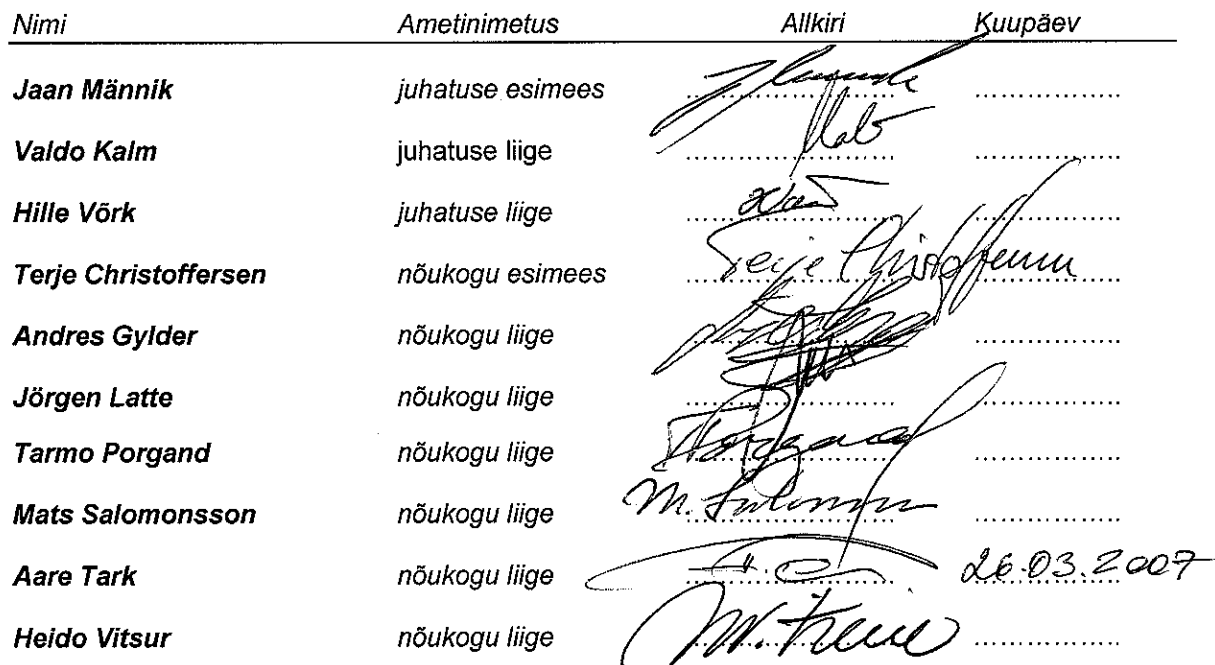 Nimi Ametinimetus Allkiri Kuupäev
Jaan Männik juhatuse esimees
Valdo Kalm juhatuse liige
Hille Võrk juhatuse liige
Terje Christoffersen nõukogu esimees Terje Christoffersen
Andres Gylder nõukogu liige
Jörgen Latte nõukogu liige
Tarmo Porgand nõukogu liige Porgand
Mats Salomonsson nõukogu liige M.
Aare Tark nõukogu liige 26.03.2007
Heido Vitsur nõukogu liige